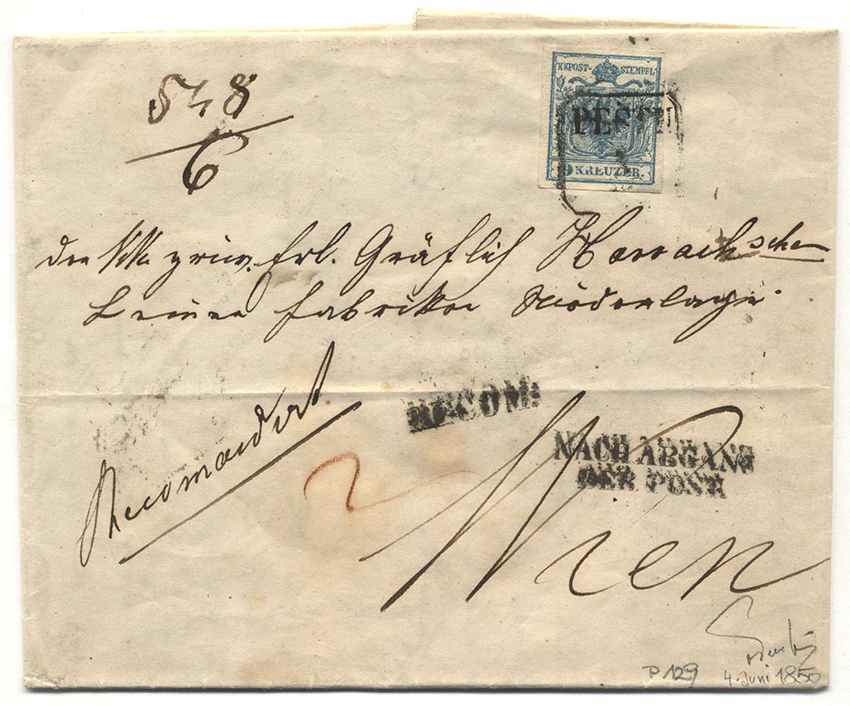 548
6
KKPOST-STEMPEL
PESTH
9 KREUZER.
die KK. priv. Erl. Gräflich Harrachsche
Leinen Fabriks Niederlage
Recomandirt
RECOM:
NACH ABGANG
DER POST
2
Wien
P 129
4. Juni 1850